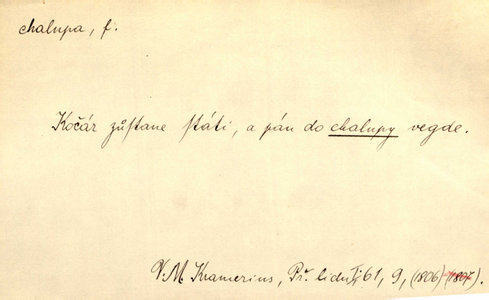 chalupa, f.
Kočár zůstane státi, a pán do chalupy vegde.
V. M. Kramerius, Př. lidu 61, 9, (1806) (1807).